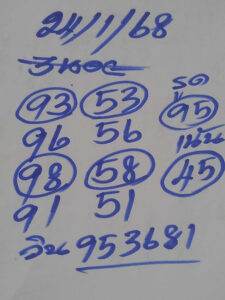 24/1/68
ฮานอย
93 53 รูด
96 56 95
98 58 เน้น
91 51 45
วิน 953681